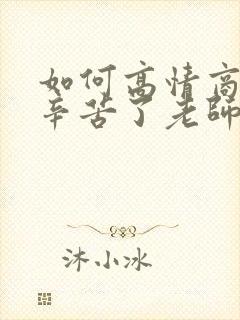 如何高情商
辛苦了老師
沐小冰